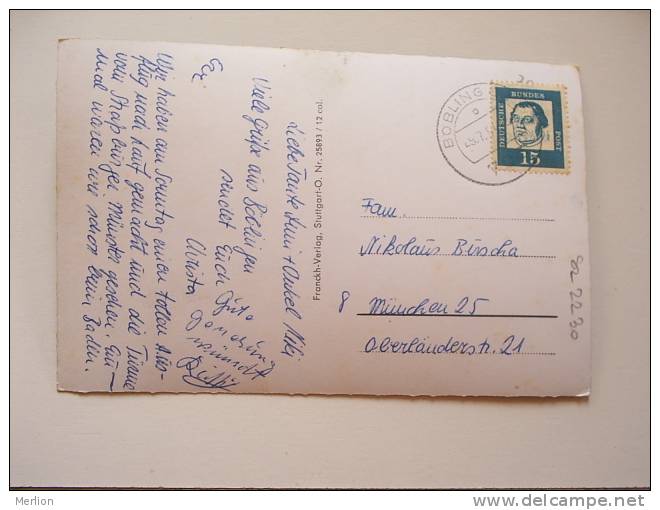 Liebe Tante Anni + Onkel Niki
Viele Grüße aus Böblingen
sendet Euch
Christa
Gute
Wir haben am Sonntag einen tollen Aus-
flug nach gemacht und die Türme
vom Münster gesehen. Ein-
mal waren wir schon beim Baden.
Franckh-Verlag, Stuttgart-O. Nr. 25893 / 12 col.
BÖBLING
DEUTSCHE BUNDES POST
15
Fam.
Nikolaus Bischa
8 München 25
Oberländerstr. 21
2230
Merlion
delcampe.net